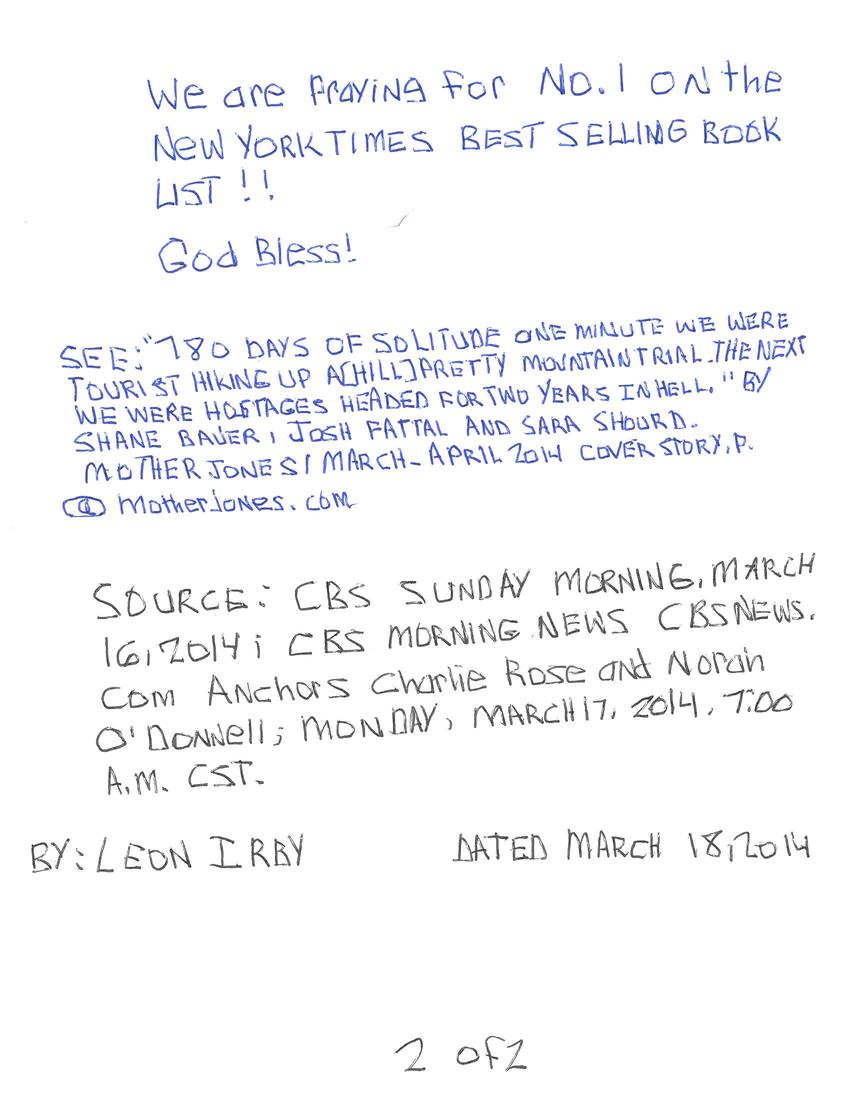 We are Praying for No. 1 on the
New YORK TIMES BEST SELLING BOOK
LIST !!
God Bless!
SEE: "780 DAYS OF SOLITUDE ONE MINUTE WE WERE
TOURIST HIKING UP A[HILL]PRETTY MOUNTAIN TRIAL. THE NEXT
WE WERE HOSTAGES HEADED FOR TWO YEARS IN HELL." BY
SHANE BAUER, JOSH FATTAL AND SARA SHOURD.
MOTHER JONES / MARCH-APRIL 2014 COVER STORY, P.
motherjones.com
SOURCE: CBS SUNDAY MORNING, MARCH
16, 2014; CBS MORNING NEWS CBSNEWS.
COM Anchors Charlie Rose and Norah
O'Donnell; MONDAY, MARCH 17, 2014, 7:00
A.M. CST.
BY: LEON IRBY DATED MARCH 18, 2014
2 of 2